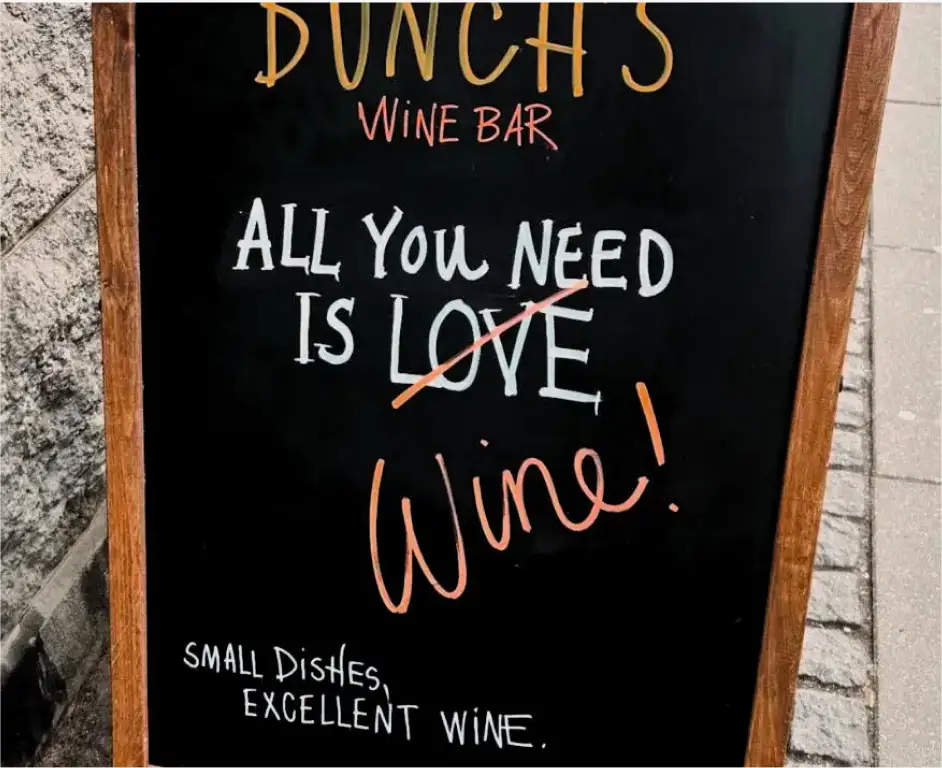 BUNCH'S
WINE BAR
ALL YOU NEED
IS LOVE
Wine!
SMALL DISHES,
EXCELLENT WINE.